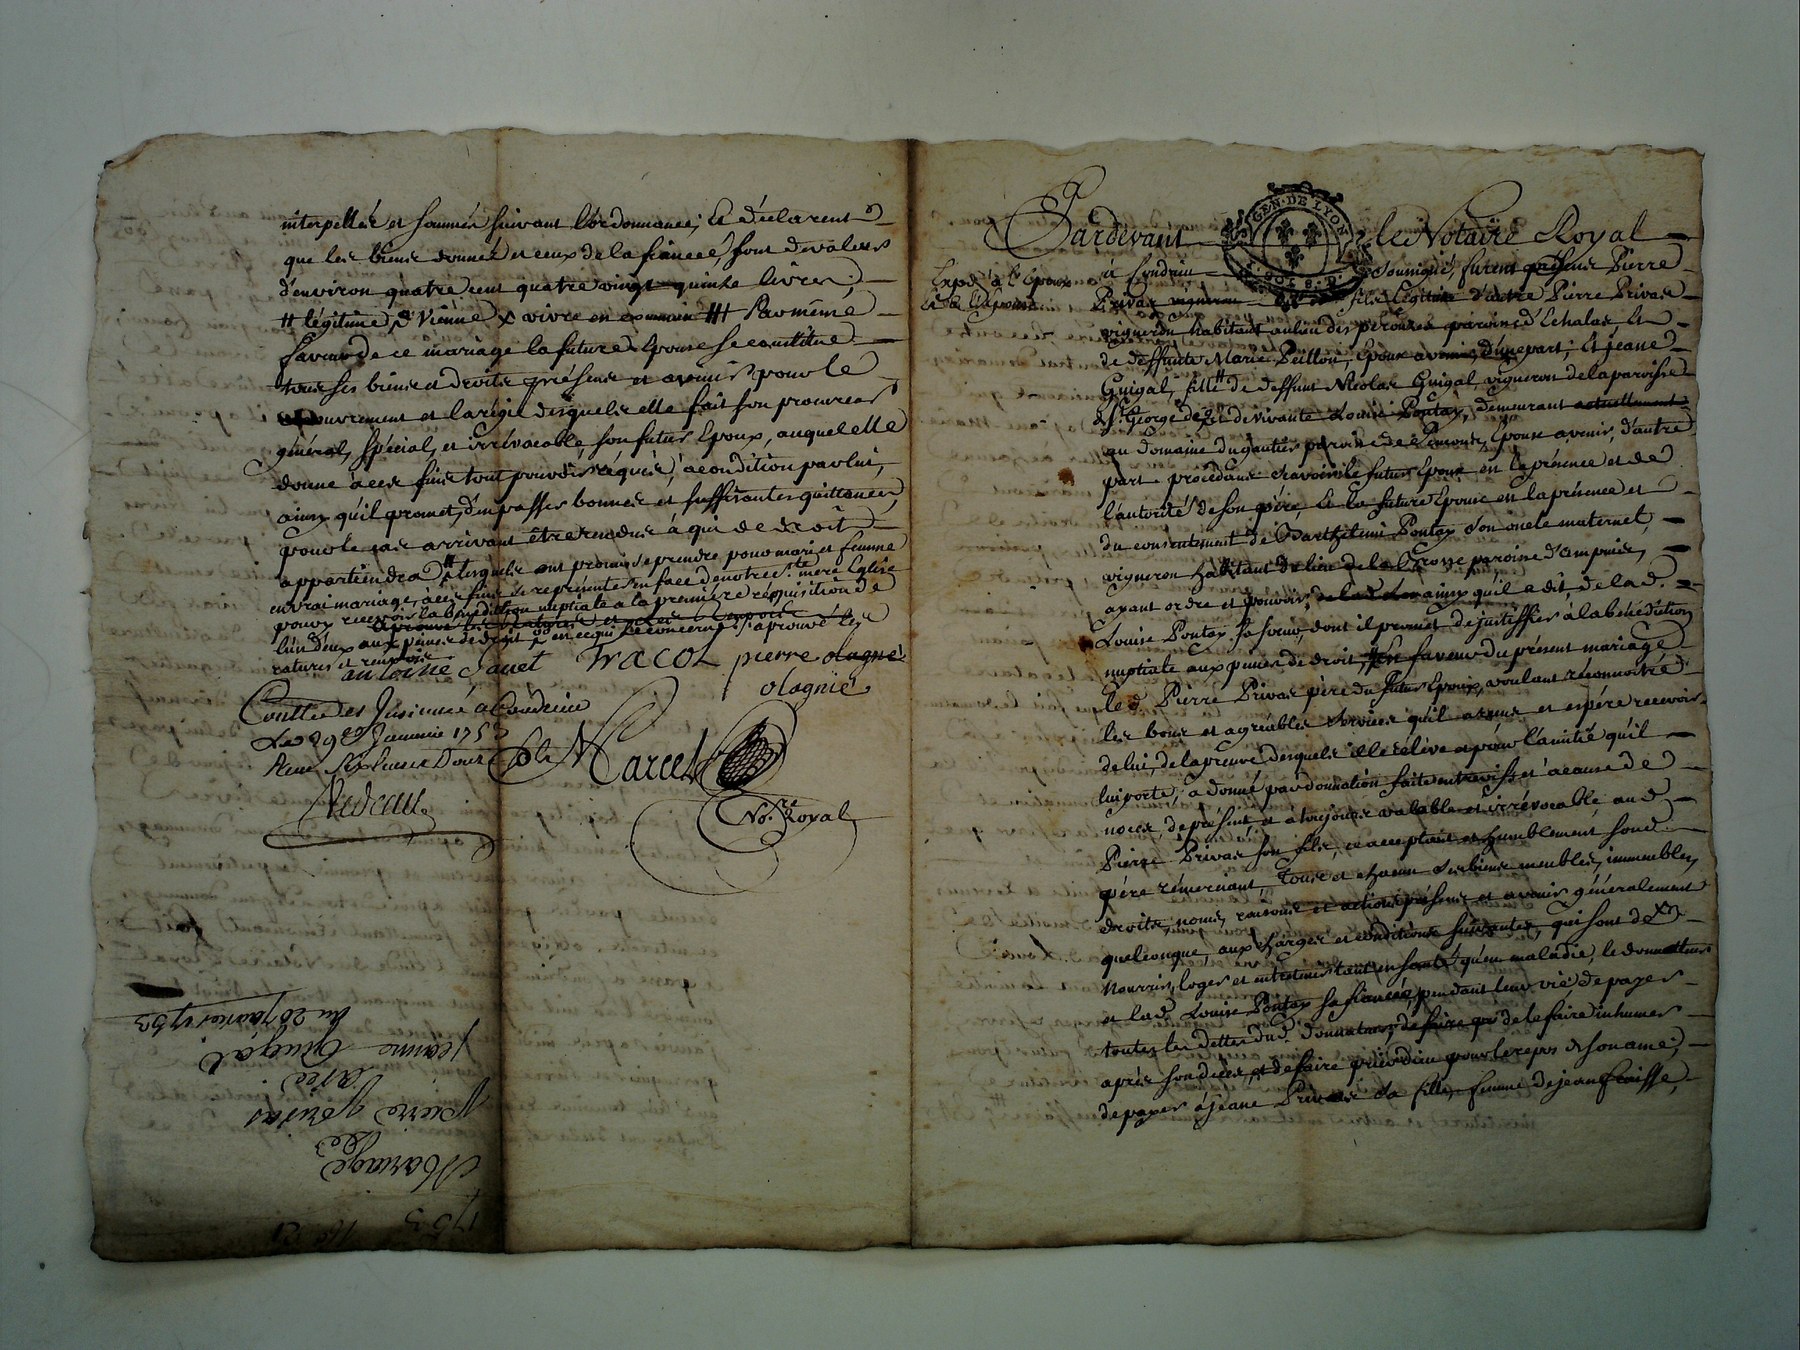 interpellés et sommés suivant l'ordonnance; et déclarent
que les biens donnés et ceux de la fiancée, sont de valeur
d'environ quatre cent quatre vingt quinze livres.
# légitime, à Vienne x vivre en commun ### Par même
faveur de ce mariage la future Epouse se constitue
tous ses biens et droits présens et avenir pour le
recouvrement et la régie desquels elle fait son procureur
général, spécial, et irrévocable, son futur Epoux, auquel elle
donne à ces fins tout pouvoir requis, à condition par lui,
ainsy qu'il promet, d'en passer bonnes et suffisantes quittances,
pour le cas arrivant être rendus à qui de droit
appartiendra # lesquels ont promis se prendre pour mari et femme
en vrai mariage, à ces fins se représenter en face de notre ste mere Eglise
pour y recevoir la bénédiction nuptiale a la première réquisition de
l'un d'eux aux peines de droit en ce qui les concerne / aprouvé les
ratures et renvois
antoine Janet TRACOL pierre olagnié
olagnié
Conttrollé et Insinué à Condrieu
Le 29e Janvier 1753
Reçu six livres Douze sols
Marcel
Nore. Royal
1753 No. 21
Mariage
De
Pierre Privas
avec
Jeanne Guigal
du 28 janvier 1753
GEN. DE LYON
Pardevant le Notaire Royal
Expé. à l'époux
et à l'épouse
à Condrieu soussigné, furent présens Pierre
Privas vigneron fils légitime d'autre Pierre Privas
vigneron habitant au lieu des pérouzes paroisse d'Echalas, et
de deffunte Marie Peillon, Epoux avenir, d'une part; Et jeane
Guigal, fille # de deffunt Nicolas Guigal, vigneron de la paroisse
de st. George et de vivante Louise Pontay, demeurant actuellement
au domaine du gautier paroisse de Simons, Epouse avenir, d'autre
part procédans sçavoir le futur Epoux en la présence et de
l'autorité de son père, et la future Epouse en la présence et
du consentement de Barthelemi Pontay son oncle maternel,
vigneron habitant du lieu de la Brosse paroisse d'ampuis,
ayant ordre et pouvoir, ainsy qu'il a dit, de lad.
Louise Pontay sa soeur, dont il promet de justiffier à la bénédiction
nuptiale aux peines de droit, # En faveur du présent mariage
led. Pierre Privas père du futur Epoux, voulant réconnoitre
les bons et agréables services qu'il a reçus et espère recevoir
de lui, de la preuve desquels il le relève et pour l'amitié qu'il
lui porte, a donné par donnation faite entrevifs et à cause de
noces, de présent et à toujours valable et irrévocable, aud.
Pierre Privas son fils, ce acceptant et humblement sond.
père rémerciant, Tous et chacun ses biens meubles, immeubles,
droits, noms, raisons et actions présens et avenir généralement
quelconque, aux charges et conditions suivantes, qui sont de
nourrir, loger et entretenir tant en santé qu'en maladie, le donnateur
et lad. Louise Pontay sa fiancée, pendant leur vie, de payer
toutes les dettes dud. donnateur, de le faire inhumer
après son décès, et de faire prier dieu pour le repos de son ame,
de payer à jeane Privas sa fille, femme de jean fraisse,